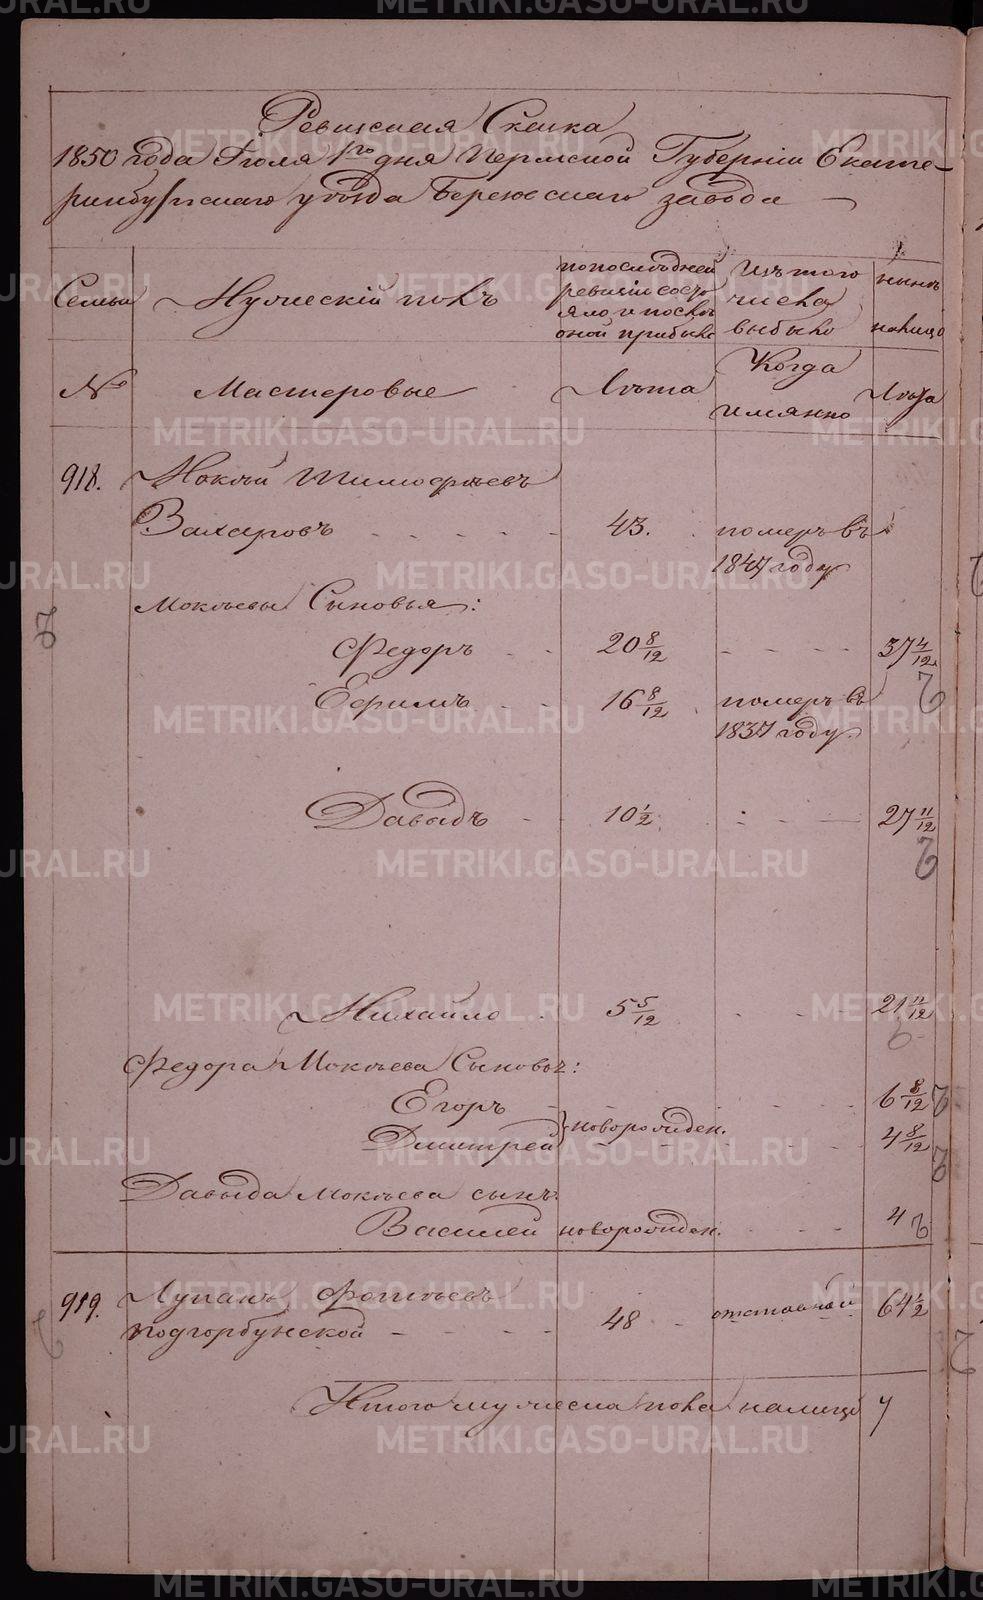 Ревизская Сказка
1850 года Іюля 1го дня Пермской Губерніи Екате-
ринбургскаго уѣзда Березовскаго завода
Семьи
Мужескій полъ
по послѣдней ревизіи состояло и послѣ оной прибыло
Изъ того числа выбыло
нынѣ налицо
№
Мастеровые
Лѣта
Когда имянно
Лѣта
918. Мокѣй Тимофѣевъ
43. померъ въ
1847 году
Мокѣевы Сыновья:
Федоръ 20 8/12 37 4/12
Ефимъ 16 8/12 померъ въ
1837 году
Давыдъ 10 1/2 27 11/12
Михайло 5 5/12 21 11/12
Федора Мокѣева Сыновья:
Егоръ 6 8/12
Дмитрей новорожден. 4 8/12
Давыда Мокѣева сынъ
Василей новорожден. 4
919. Лупанъ
подгорбунской 48 отставной 64 1/2
Итого мужеска пола налицо 7
METRIKI.GASO-URAL.RU